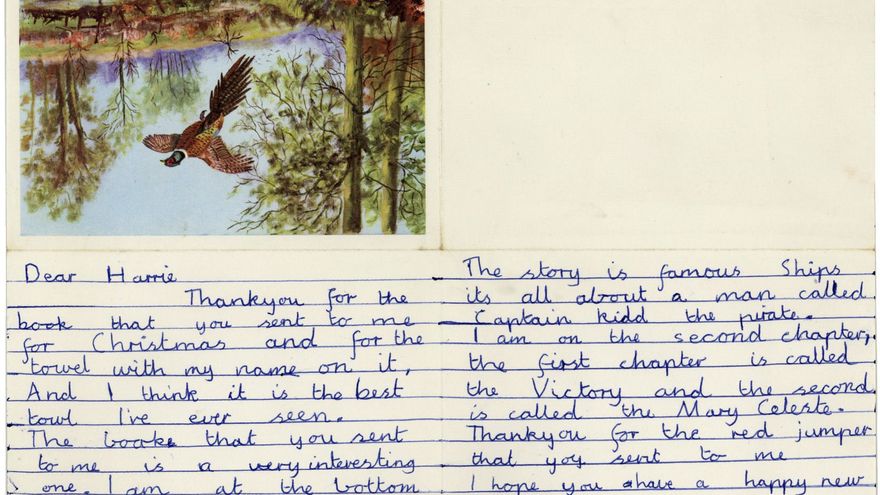 Dear Harrie
Thankyou for the
book that you sent to me
for Christmas and for the
towel with my name on it,
And I think it is the best
towl I've ever seen.
The booke that you sent
to me is a very interesting
one. I am at the bottom
The story is famous Ships
its all about a man called
Captain kidd the pirate.
I am on the second chapter,
the first chapter is called
the Victory and the second
is called the Mary Celeste.
Thankyou for the red jumper
that you sent to me
I hope you ahave a happy new